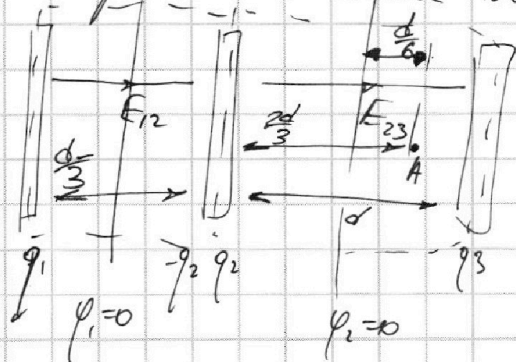 d/6
E₁₂ 2d/3 E₂₃
d/3 A
d
q₁ -q₂ q₂ q₃
φ₁=0 φ₂=0